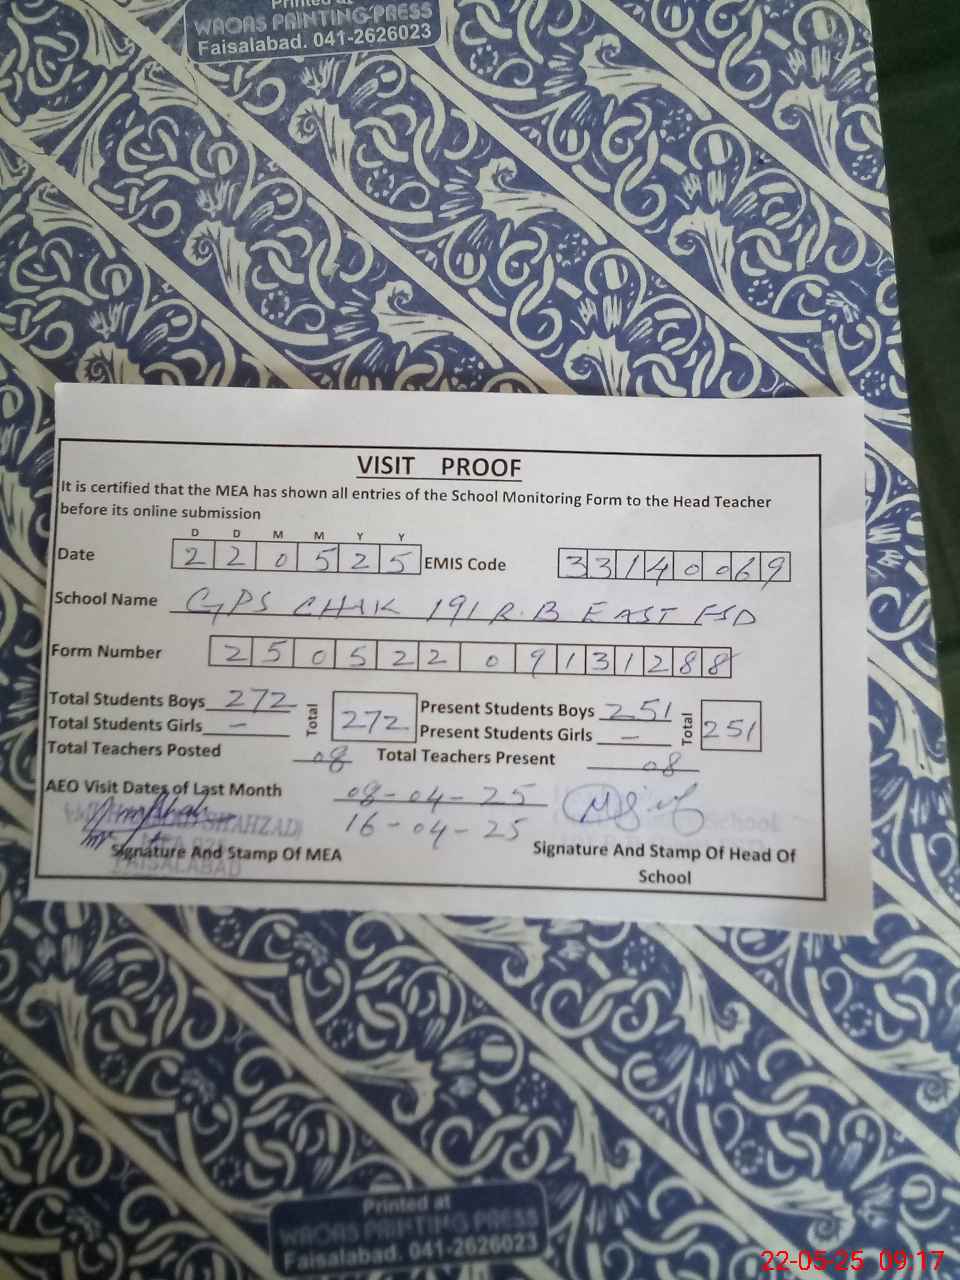 Printed at
WAQAS PRINTING PRESS
Faisalabad. 041-2626023
VISIT PROOF
It is certified that the MEA has shown all entries of the School Monitoring Form to the Head Teacher
before its online submission
D D M M Y Y
Date 2 2 0 5 2 5 EMIS Code 3 3 1 4 0 0 6 9
School Name GPS CHAK 191 R.B EAST FSD
Form Number 2 5 0 5 2 2 0 9 1 3 1 2 8 8
Total Students Boys 272 Total 272 Present Students Boys 251 Total 251
Total Students Girls — Present Students Girls —
Total Teachers Posted 08 Total Teachers Present 08
AEO Visit Dates of Last Month 08-04-25
16-04-25
SHAHZAD
MEA
FAISALABAD
School
Signature And Stamp Of MEA Signature And Stamp Of Head Of
School
Printed at
WAQAS PRINTING PRESS
Faisalabad. 041-2626023
22-05-25 09:17